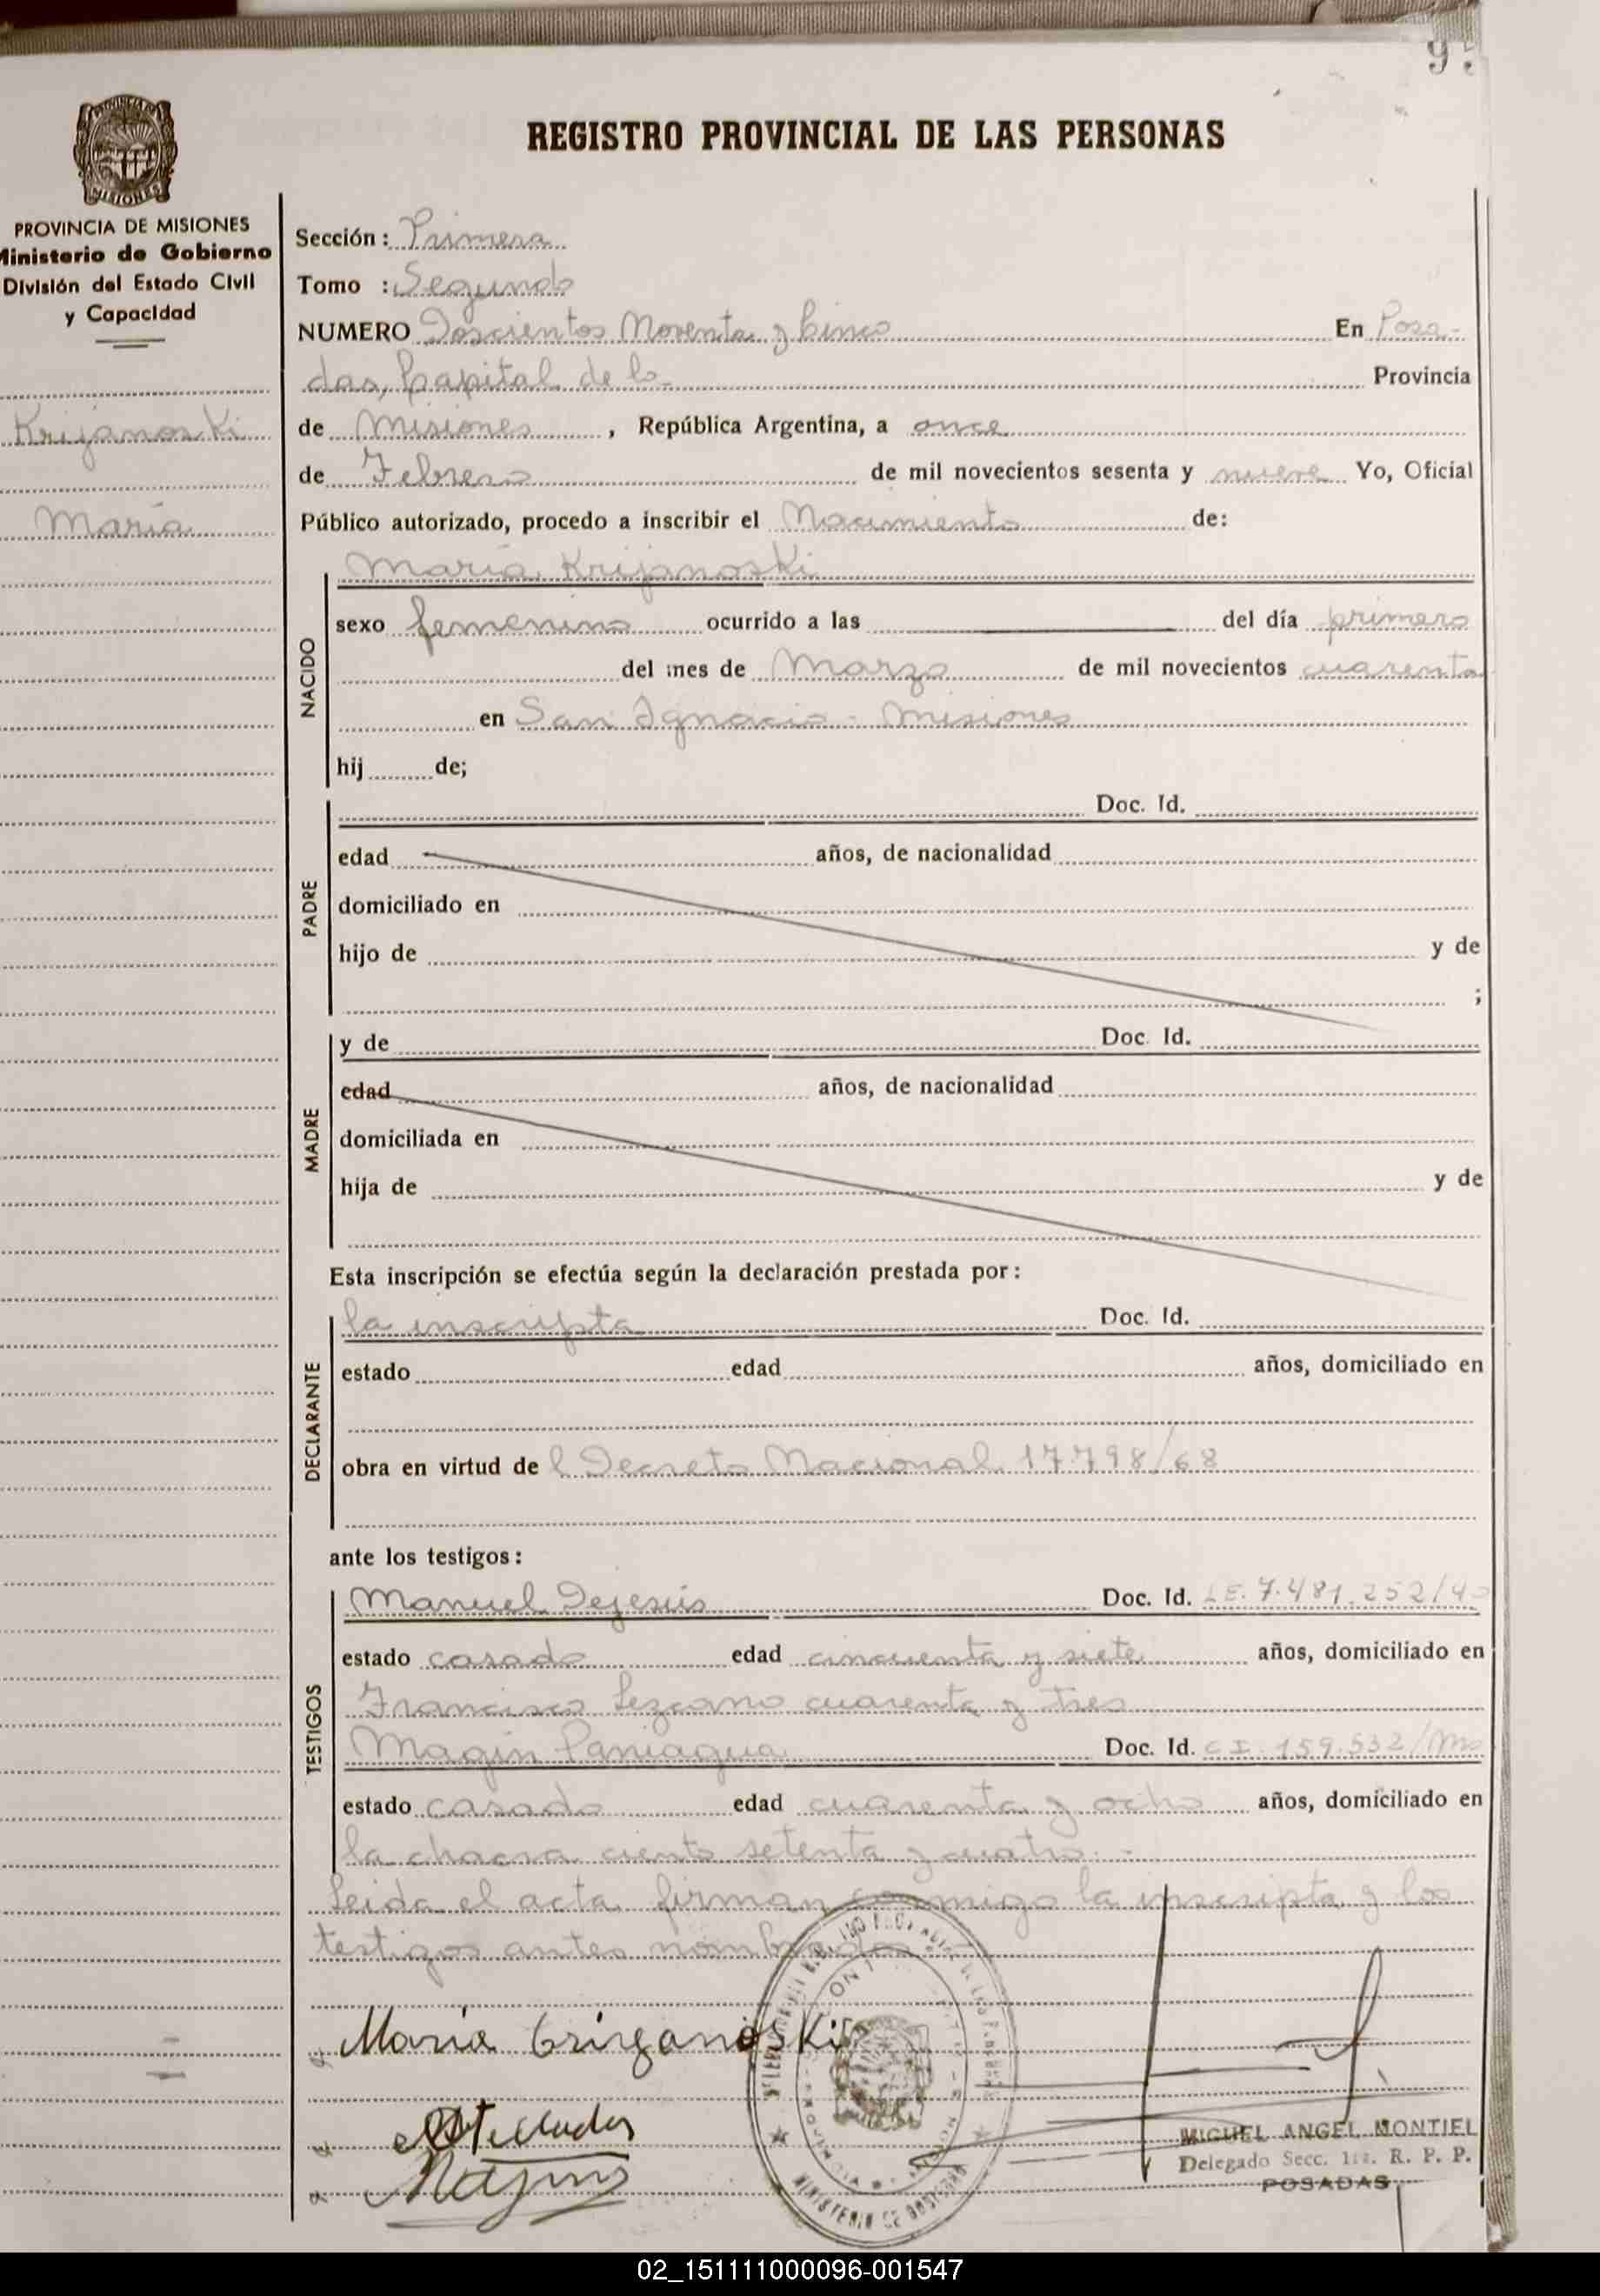 REGISTRO PROVINCIAL DE LAS PERSONAS
MISIONES
PROVINCIA DE MISIONES
Ministerio de Gobierno
División del Estado Civil
y Capacidad
Krijanoski
María
Sección: Primera
Tomo : Segundo
NUMERO Doscientos Noventa y Cinco En Posa-
das, Capital de la Provincia
de Misiones, República Argentina, a once
de Febrero de mil novecientos sesenta y nueve Yo, Oficial
Público autorizado, procedo a inscribir el Nacimiento de:
NACIDO
María Krijanoski
sexo femenino ocurrido a las del día primero
del mes de Marzo de mil novecientos cuarenta
en San Ignacio - Misiones
hij de;
PADRE
Doc. Id.
edad años, de nacionalidad
domiciliado en
hijo de y de
;
MADRE
y de Doc. Id.
edad años, de nacionalidad
domiciliada en
hija de y de
Esta inscripción se efectúa según la declaración prestada por:
DECLARANTE
la inscripta Doc. Id.
estado edad años, domiciliado en
obra en virtud de l Decreto Nacional 17.798/68
ante los testigos:
TESTIGOS
Manuel Dejesús Doc. Id. L.E. 7.481.252/40
estado casado edad cincuenta y siete años, domiciliado en
Francisco Lezcano cuarenta y tres
Magín Paniagua Doc. Id. C.I. 159.532/Ms
estado casado edad cuarenta y ocho años, domiciliado en
la chacra ciento setenta y cuatro.-
Leida el acta, firman conmigo la inscripta y los
testigos antes nombrados
María Grizanoski
MINISTERIO DE GOBIERNO
MIGUEL ANGEL MONTIEL
Delegado Secc. 1ra. R. P. P.
POSADAS
02_151111000096-001547